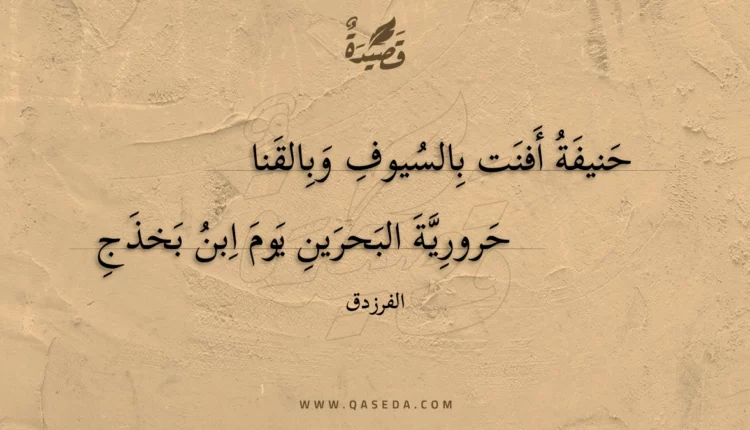 قَصِيدَةٌ
حَنيفَةُ أَفنَت بِالسُيوفِ وَبِالقَنا
حَرورِيَّةَ البَحرَينِ يَومَ اِبنُ بَخذَجِ
الفرزدق
WWW.QASEDA.COM